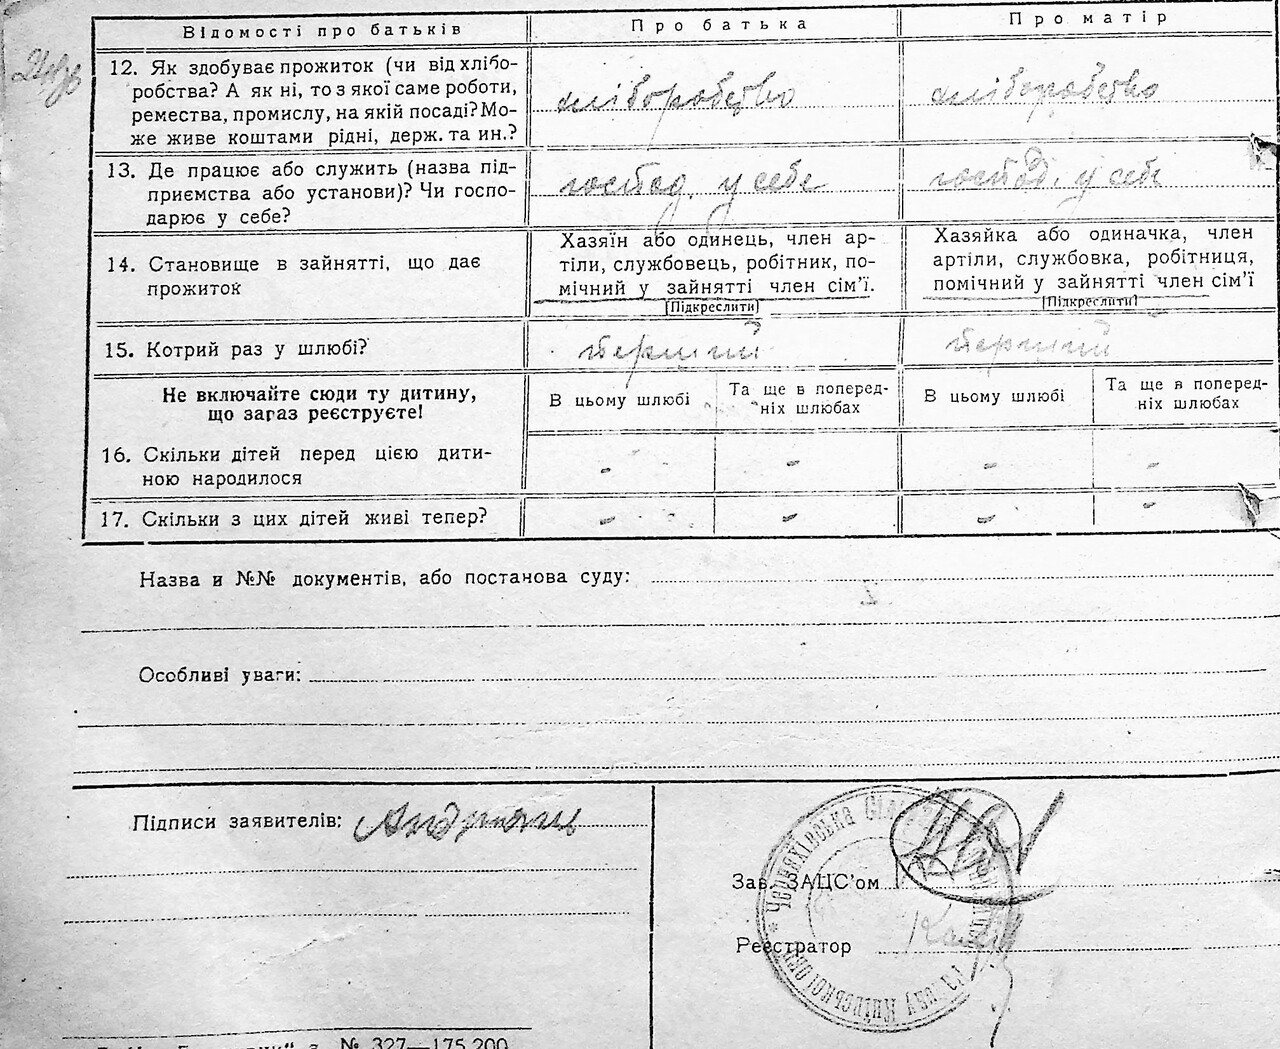 Відомості про батьків
Про батька
Про матір
12. Як здобуває прожиток (чи від хлібо-
робства? А як ні, то з якої саме роботи,
ремества, промислу, на якій посаді? Мо-
же живе коштами рідні, держ. та ин.?
хліборобство
хліборобство
13. Де працює або служить (назва під-
приємства або установи)? Чи госпо-
дарює у себе?
господ. у себе
господ. у себе
14. Становище в зайнятті, що дає
прожиток
Хазяїн або одинець, член ар-
тіли, службовець, робітник, по-
мічний у зайнятті член сім'ї.
[Підкреслити]
Хазяйка або одиначка, член
артіли, службовка, робітниця,
помічний у зайнятті член сім'ї
[Підкреслити]
15. Котрий раз у шлюбі?
перший
перший
Не включайте сюди ту дитину,
що зараз реєструєте!
В цьому шлюбі
Та ще в поперед-
ніх шлюбах
В цьому шлюбі
Та ще в поперед-
ніх шлюбах
16. Скільки дітей перед цією дити-
ною народилося
- - - -
17. Скільки з цих дітей живі тепер?
- - - -
Назва и №№ документів, або постанова суду:
Особливі уваги:
Підписи заявителів:
Зав. ЗАЦС'ом
Реєстратор
Червяхівська Сіл
Київської
№ 327—175.200